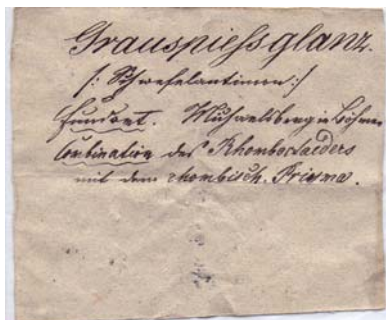 Grauspiessglanz.
/: Schwefelantimon :/
Fundort. Michaelsberg in Böhmen
Combination des Rhomboctaeders
mit dem rhombisch. Prisma.